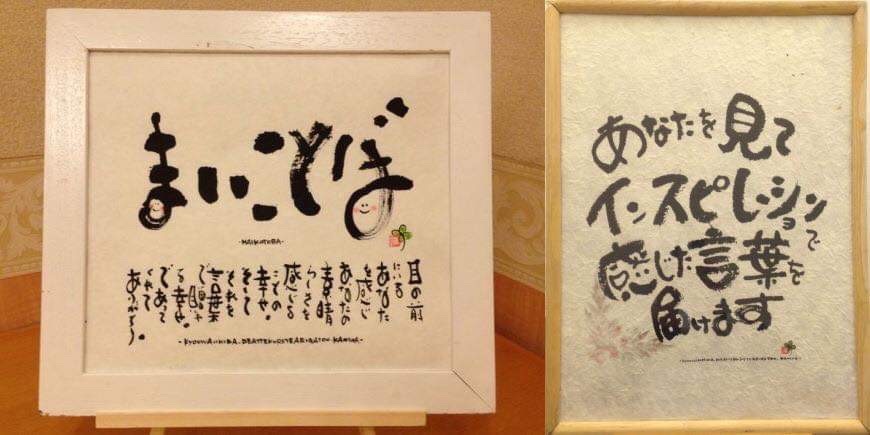 まいことば
-MAIKOTOBA-
目の前
にいる
あなた
を感じ
あなたの
素晴
らしさを
感じる
ことの
幸せ。
そして
それを
言葉
で贈れ
る幸せ。
であって
くれて
ありがとう。
あなたを見て
インスピレーションで
感じた言葉を
届けます